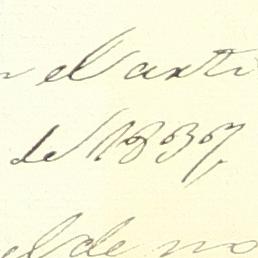 n el arti
de 1837,
el de no